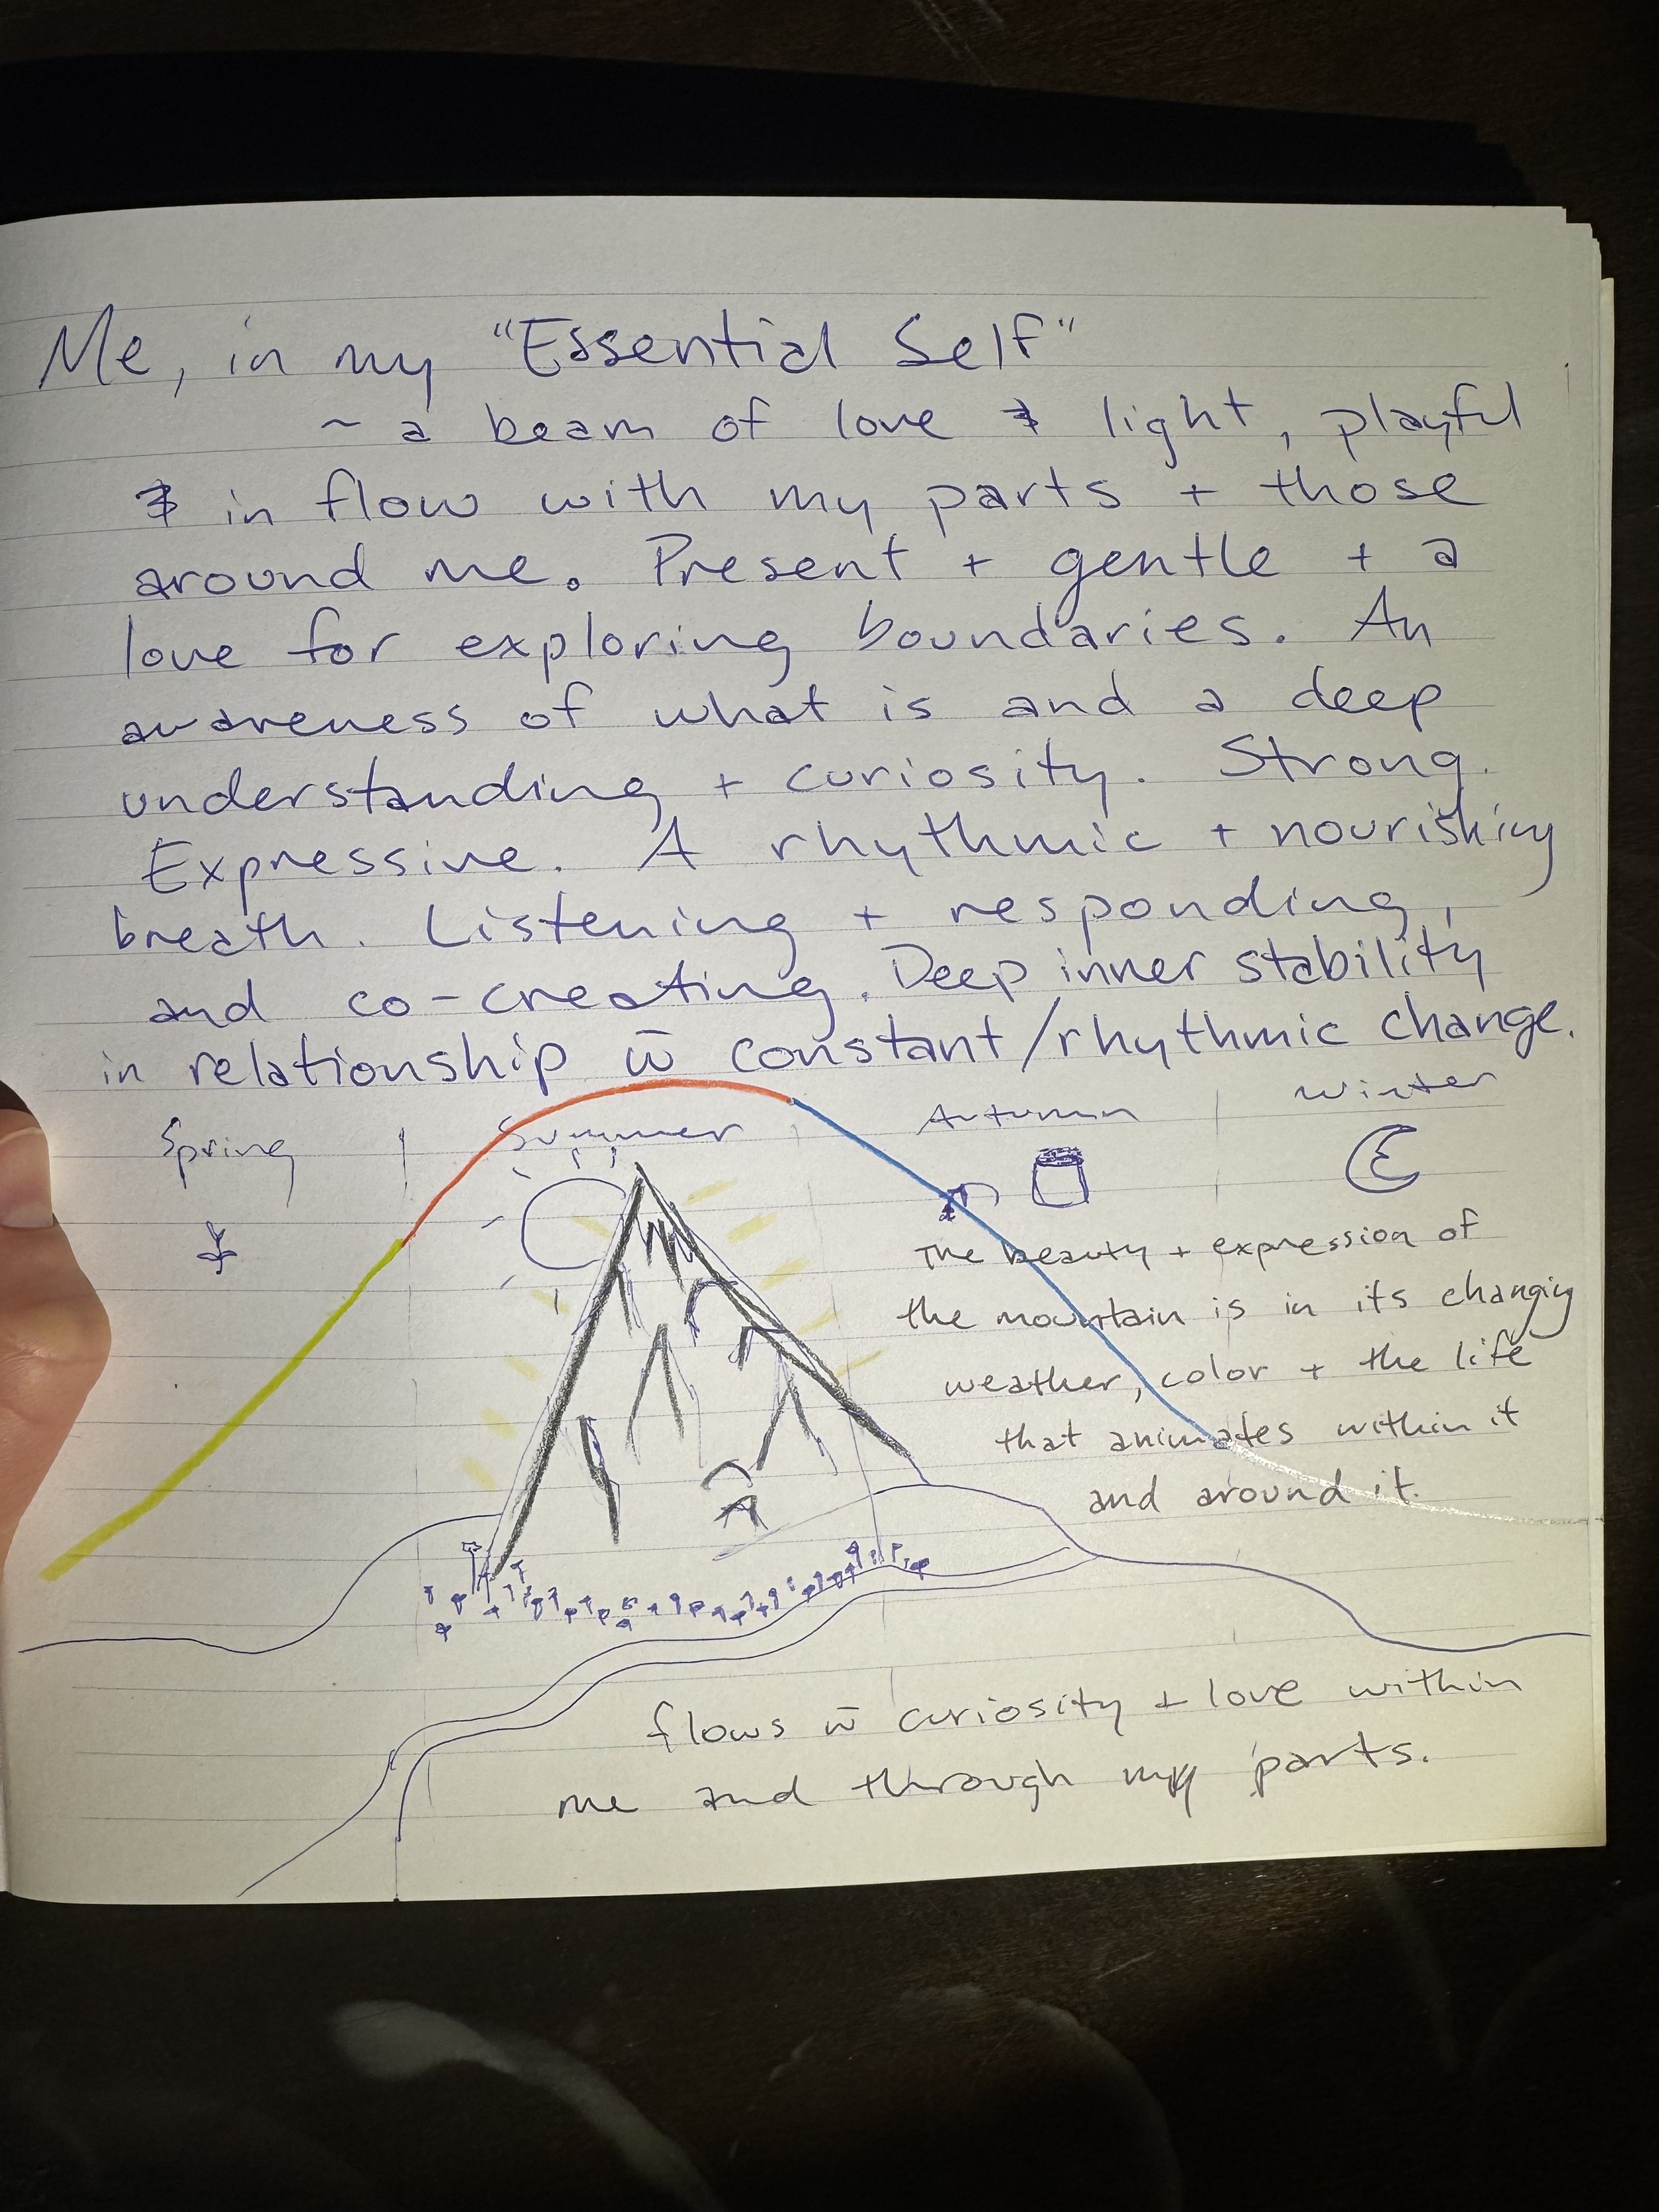 Me, in my "Essential Self"
~ a beam of love & light, playful
& in flow with my parts + those
around me. Present + gentle + a
love for exploring boundaries. An
awareness of what is and a deep
understanding + curiosity. Strong.
Expressive. A rhythmic + nourishing
breath. Listening + responding,
and co-creating. Deep inner stability
in relationship w̄ constant/rhythmic change.
Spring | Summer | Autumn | Winter
The beauty + expression of
the mountain is in its changing
weather, color + the life
that animates within it
and around it.
flows w̄ curiosity + love within
me and through my parts.